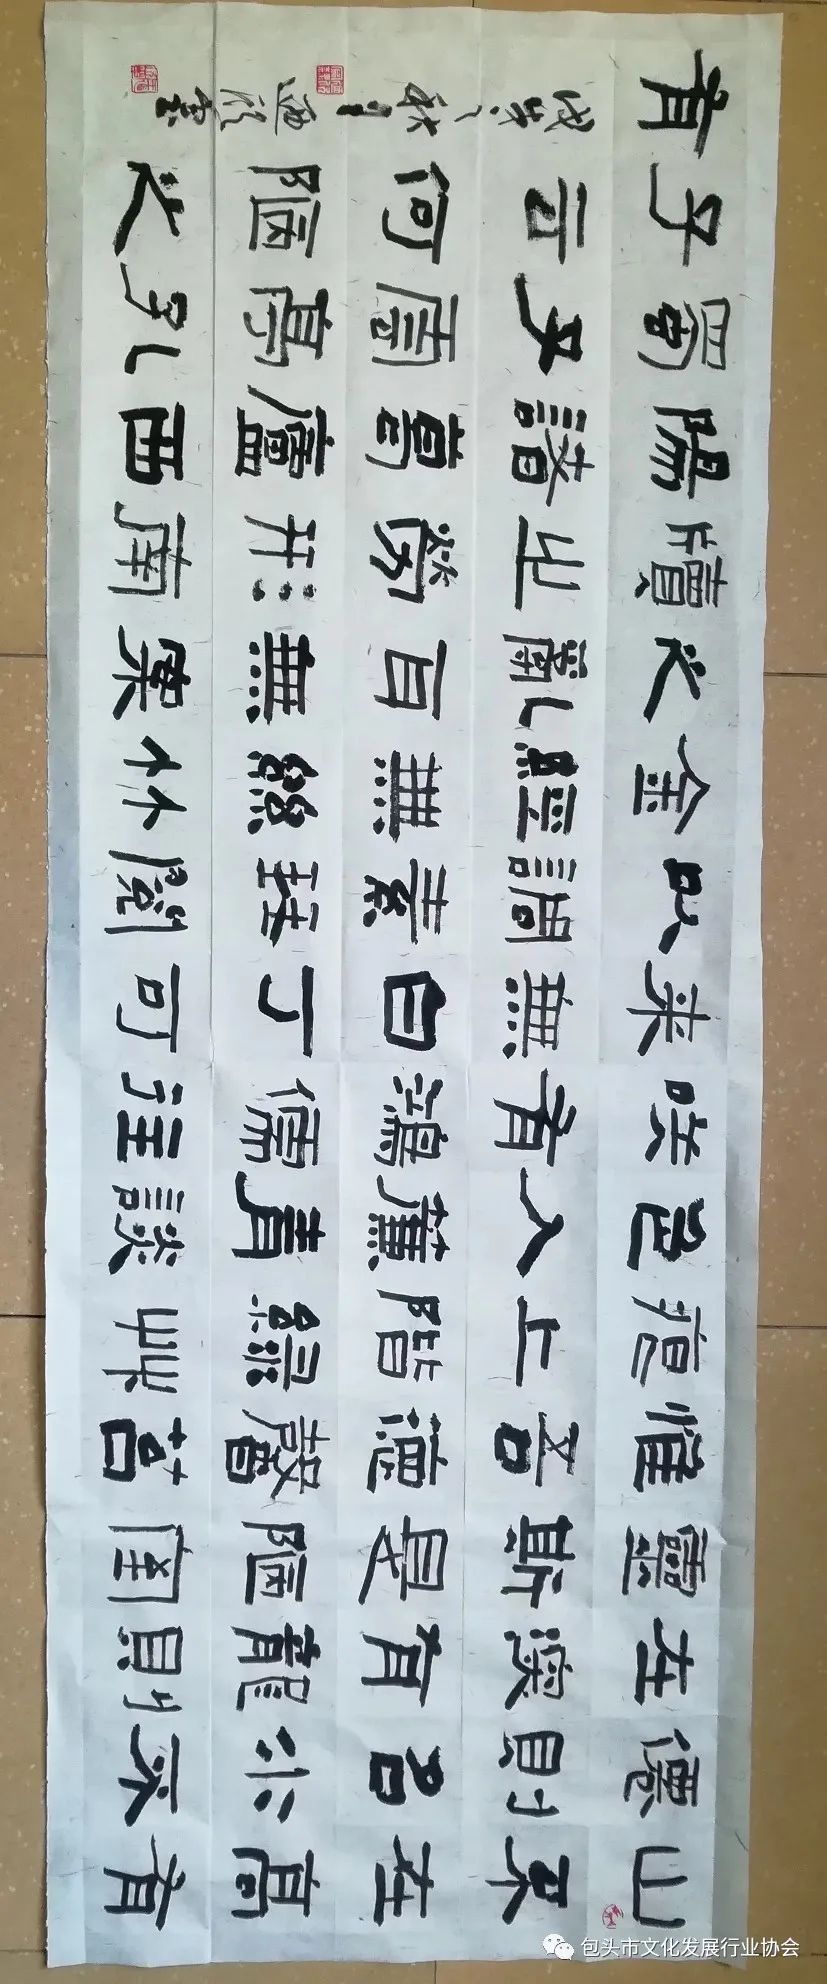 山不在高有
僊則名水不
在深有龍則
靈斯是陋室
惟吾德馨苔
痕上階綠草
色入簾青談
笑有鴻儒往
來無白丁可
以調素琴閱
金經無絲竹
之亂耳無案
牘之勞形南
陽諸葛廬西
蜀子雲亭孔
子云何陋之
有
戊戌之秋月
包头市文化发展行业协会